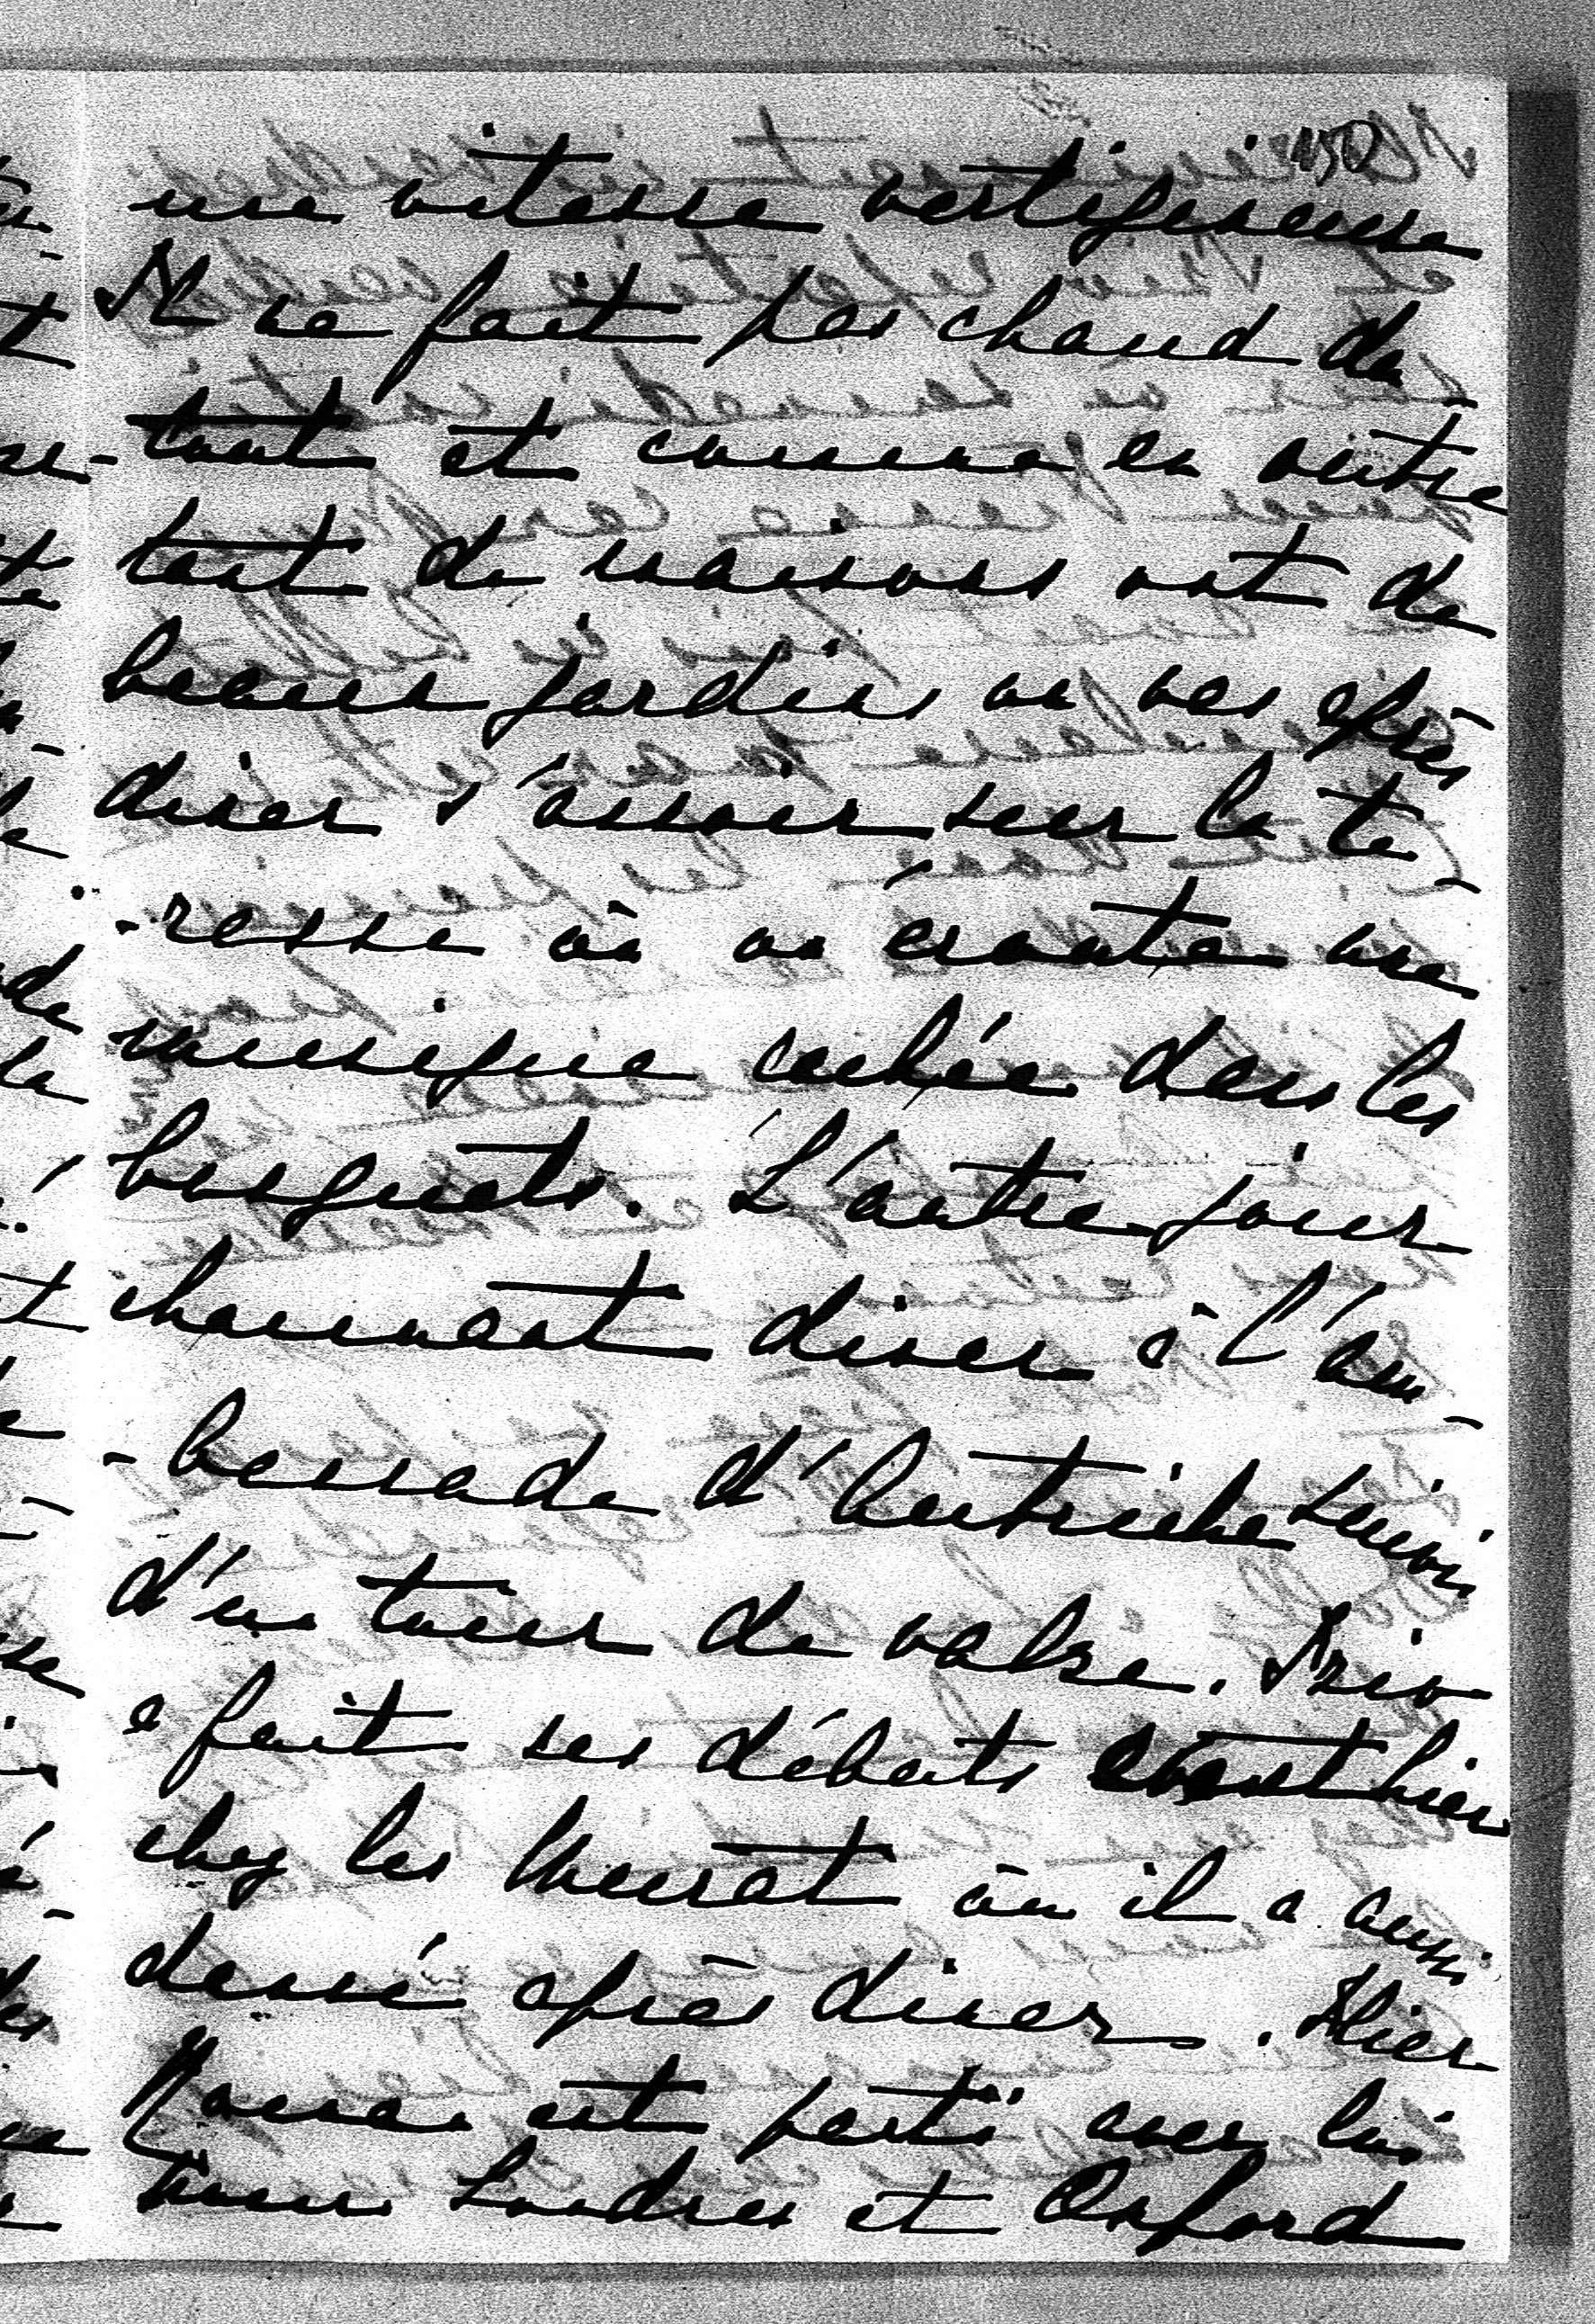 150
une vitesse vertigineuse
Il ne fait pas chaud du
tout et comme en outre
tant de maisons ont de
beaux jardins on va après
diner s'assoir sur la te
-rasse où on écoute une
musique cachée dans les
bosquets. L'autre jour
charmant diner à l'am-
-bassade d'Autriche suivi
d'un tour de valse.
a fait ses débuts avant hier
chez les Murat où il a aussi
dansé après diner. Hier
est parti avec lui
pour Londres et Oxford